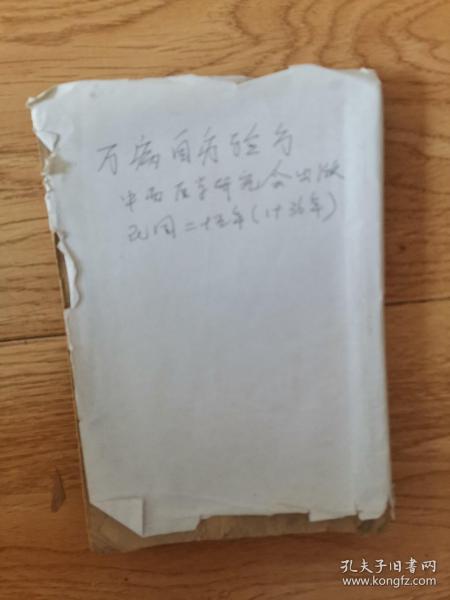 万病自疗验方
中西医学研究会出版
民国二十五年(1936年)
孔夫子旧书网
www.kongfz.com